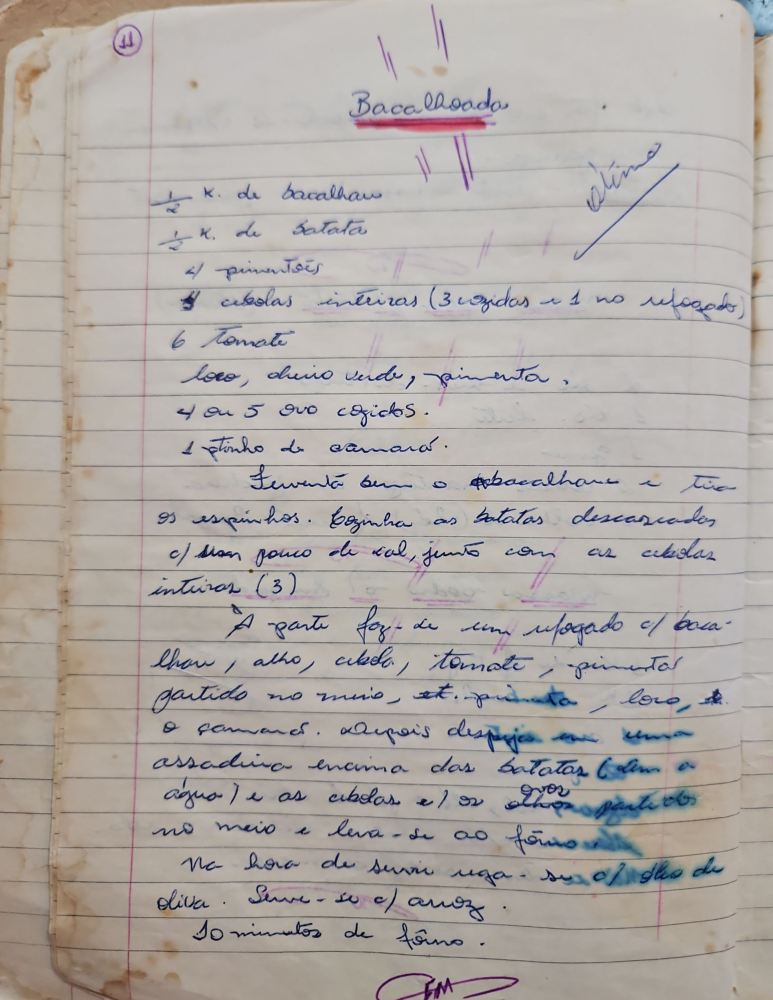 11
Bacalhoada
ótimo
1/2 K. de bacalhau
1/2 K. de batata
4 pimentões
4 cebolas inteiras (3 cozidas e 1 no refogado)
6 tomate
loro, cheiro verde, pimenta.
4 ou 5 ovo cozidos.
1 ptinho de camarã.
Ferventã bem o bacalhau e tira
os espinhos. Cozinha as batatas descascadas
c/ um pouco de sal, junto com as cebolas
inteiras (3)
À parte faz-se um refogado c/ baca-
lhau, alho, cebola, tomate, pimentã
partido no meio, pimenta, loro,
o camarã. Depois despeja em uma
assadeira encima das batatas (sem a
água) e as cebolas e/ os ovos partidos
no meio e leva-se ao fôrno
Na hora de servir rega-se c/ óleo de
oliva. Serve-se c/ arroz.
10 minutos de fôrno.
EM